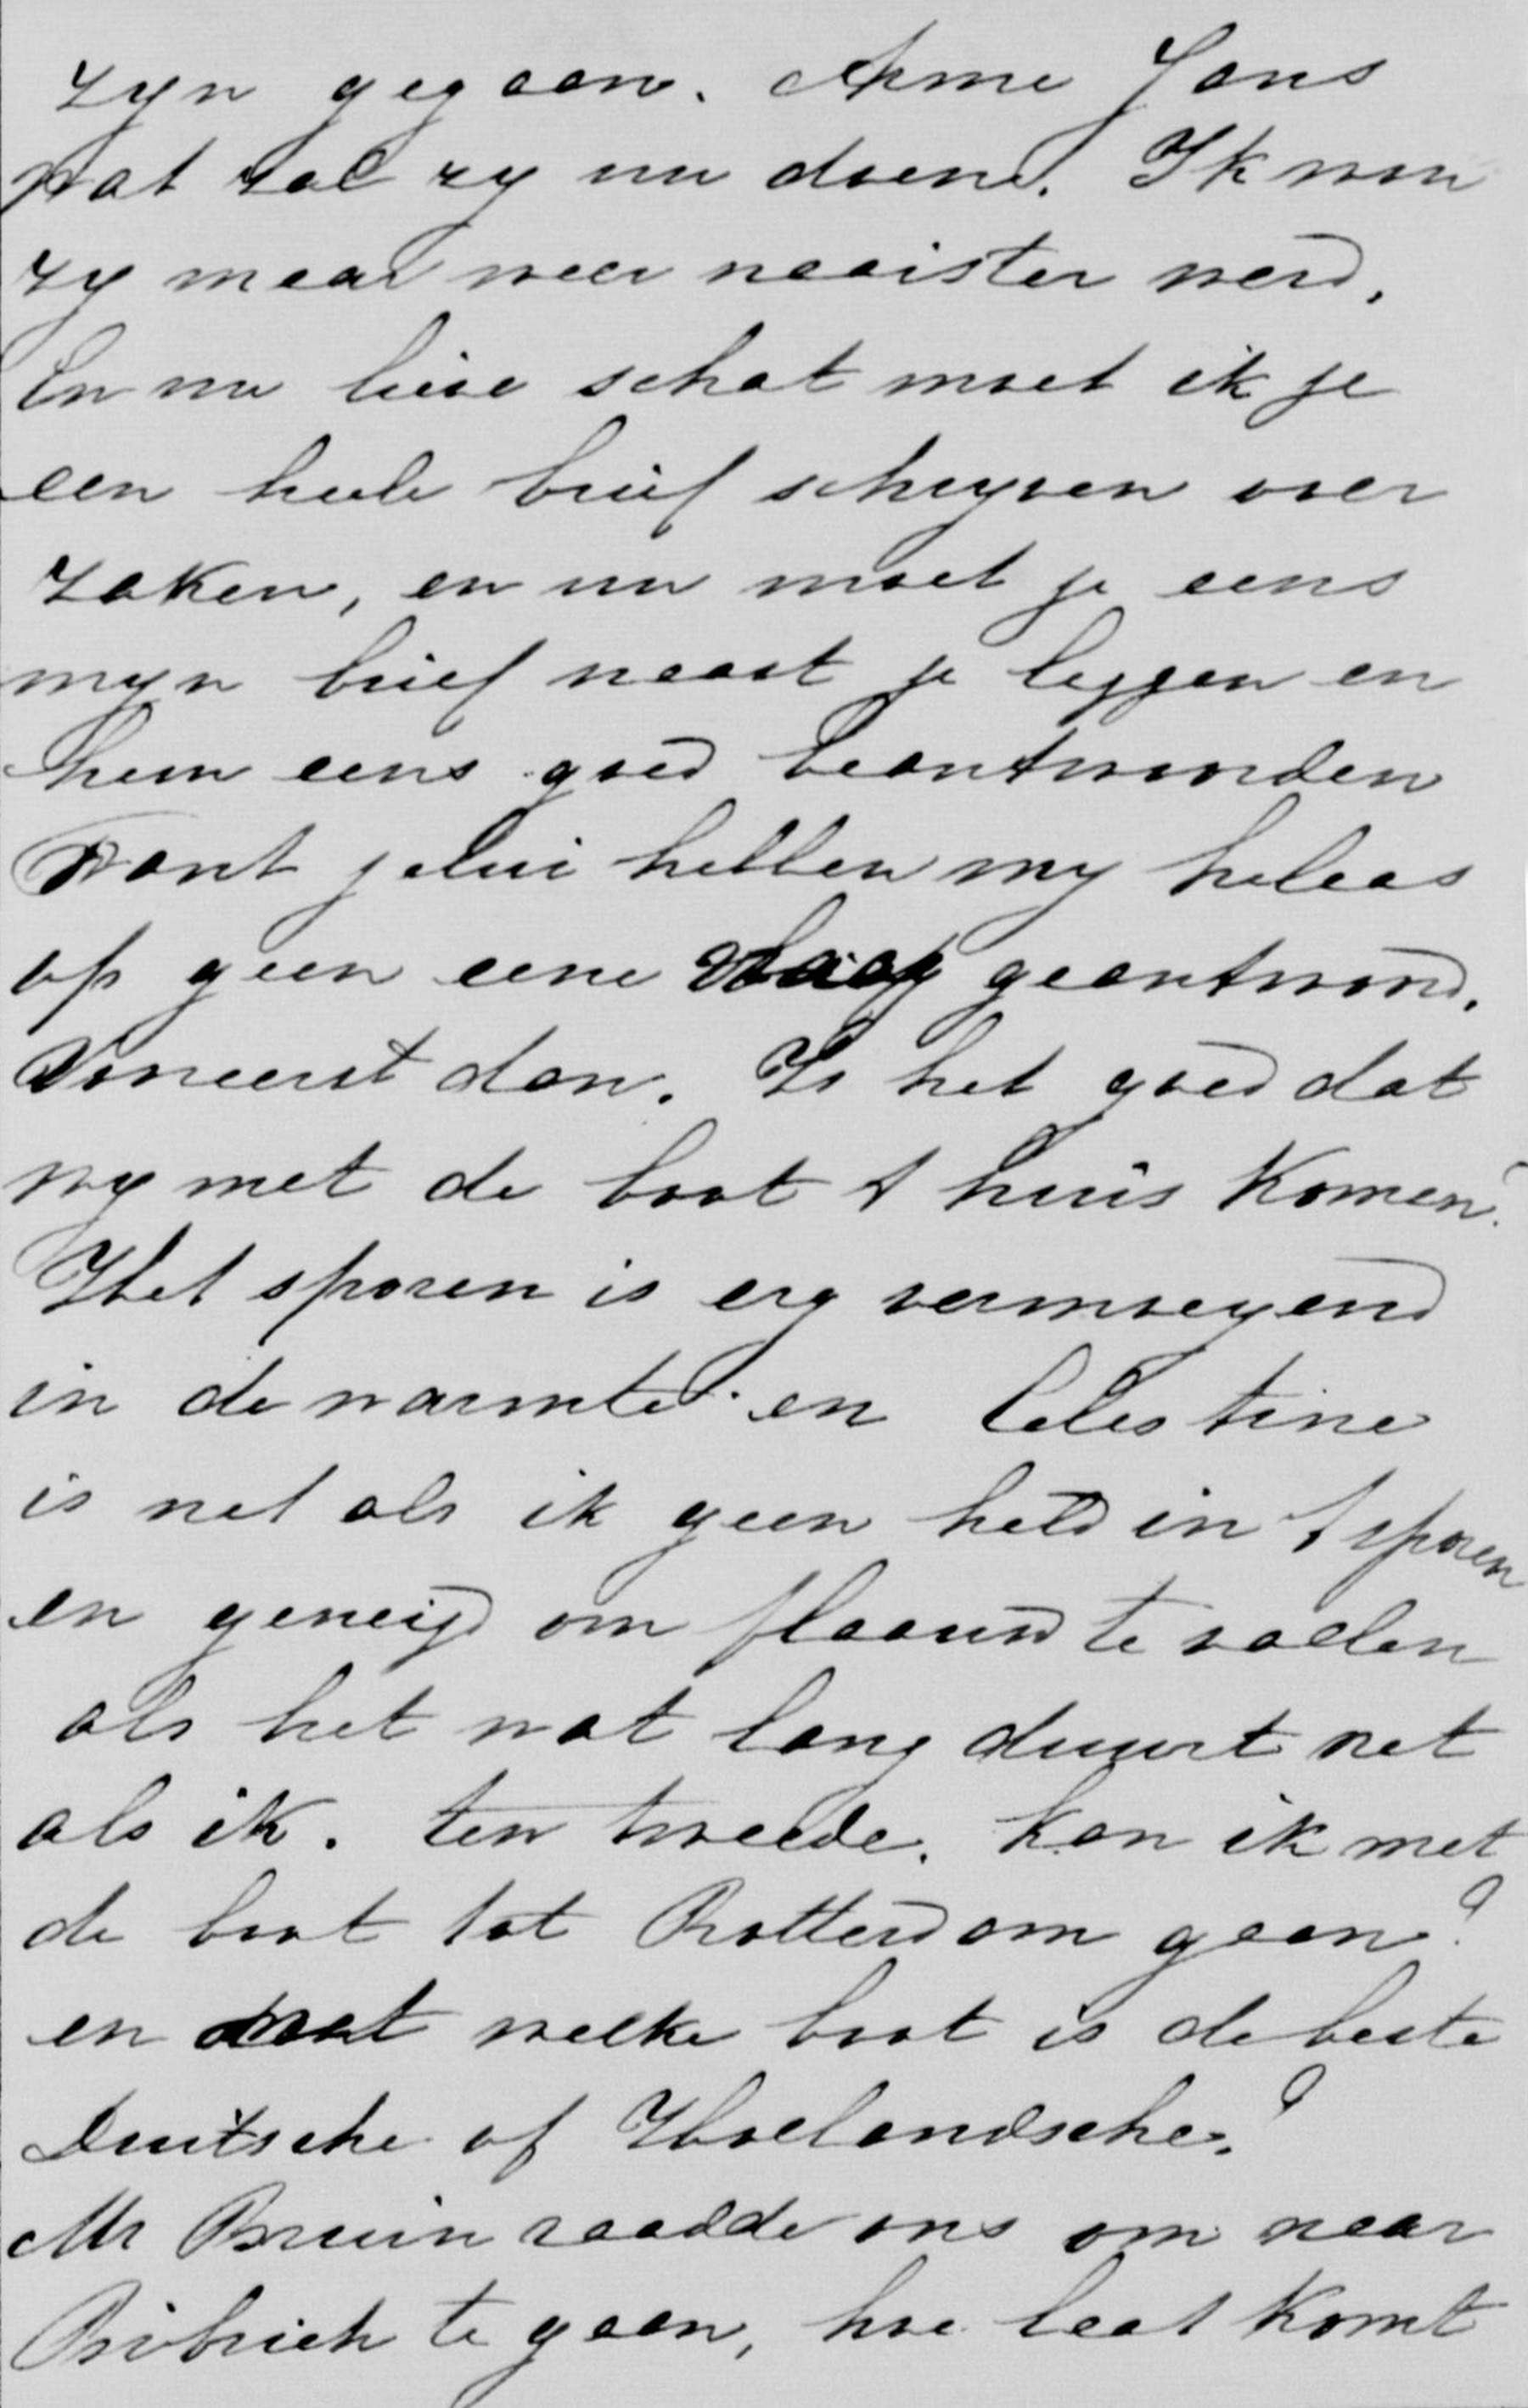 zyn gegaan. Arme Jans
wat zal zy nu doen. Ik wou
zy maar weer naaister werd.
En nu lieve schat moet ik je
een heele brief schryven over
zaken, en nu moet je eens
myn brief naast je leggen en
hem eens goed beantwoorden
Want jelui hebben my helaas
op geen eene vraag geantwoord.
Vooreerst dan. Is het goed dat
wy met de boot t huis komen?
Het sporen is erg vermoeyend
in de warmte en Celestine
is net als ik geen held in t sporen
en geneigd om flaauw te vallen
als het wat lang duurt net
als ik. ten tweede. kan ik met
de boot tot Rotterdam gaan?
en welke boot is de beste
Duitsche of Hollandsche?
Mr Bruin raadde ons om naar
Bibrich te gaan, hoe laat komt